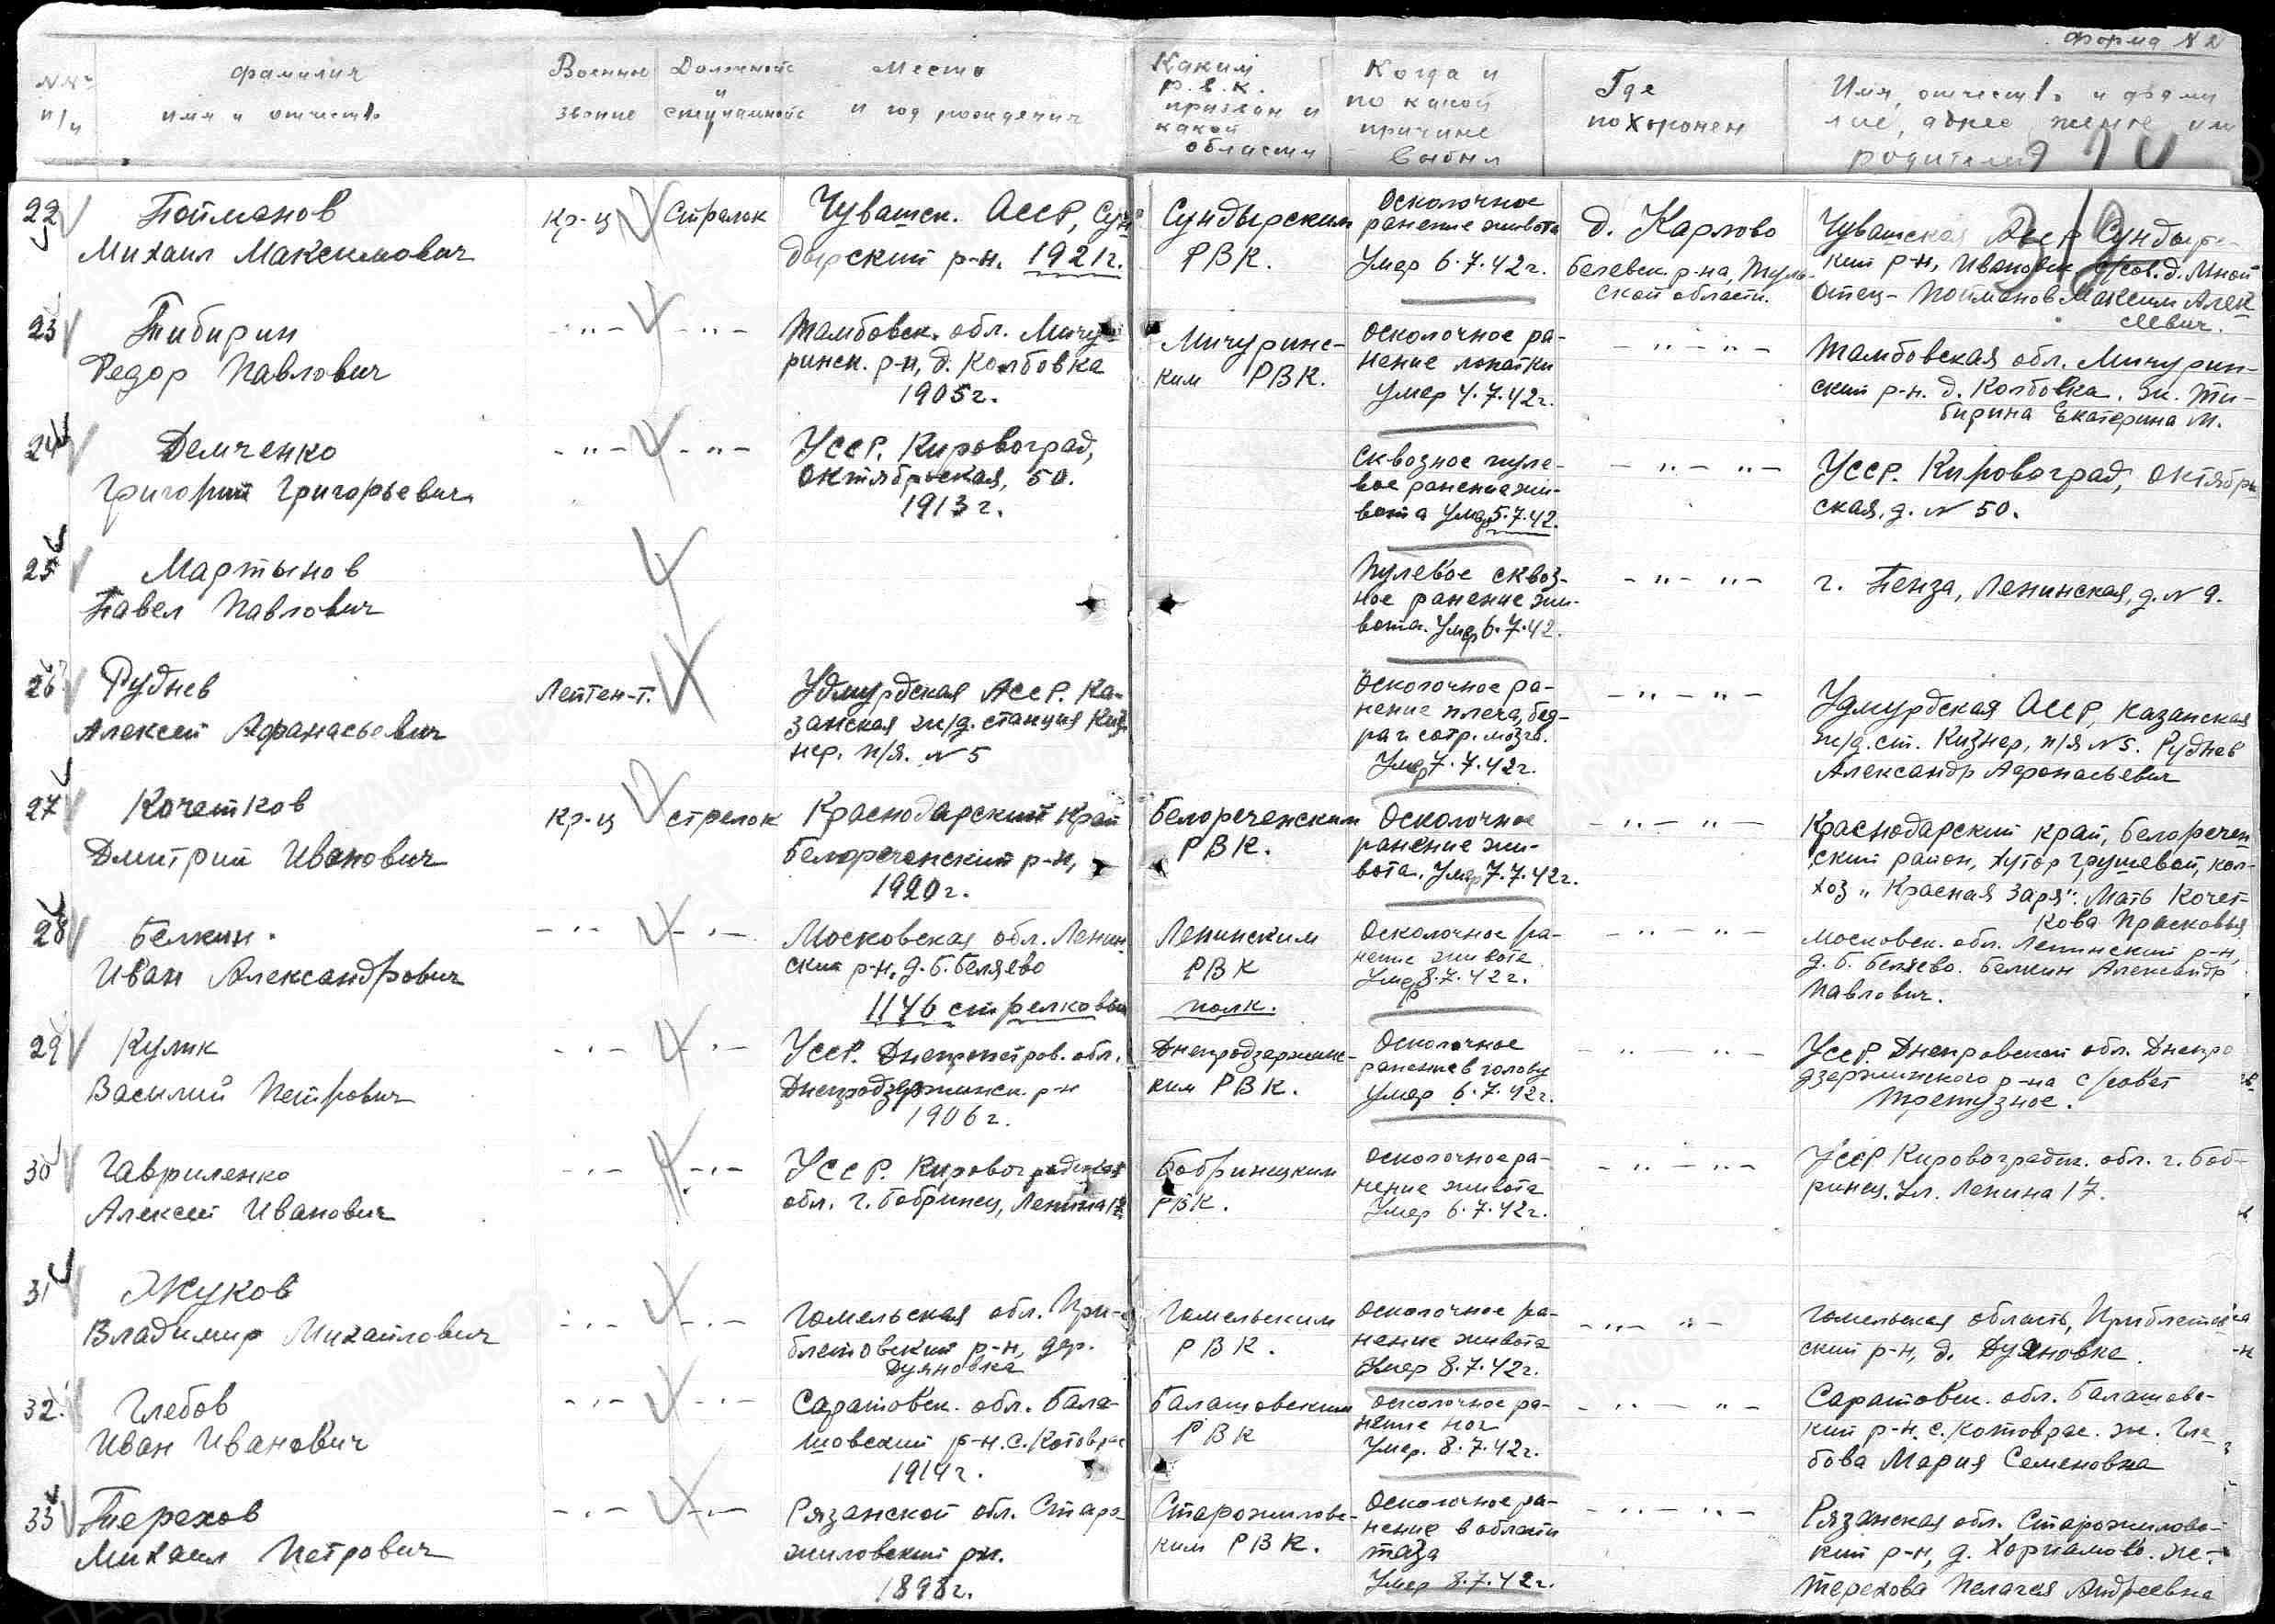 Форма №2
№№ п/п
Фамилия
имя и отчество
Военное
звание
Должность
и
специальность
Место
и год рождения
Каким
Р.В.К.
призван и
какой
области
Когда и
по какой
причине
выбыл
Где
похоронен
Имя, отчество и фами
лие, адрес жены или
родителей
22
Пойманов
Михаил Максимович
кр-ц
Стрелок
Чувашск. АССР, Сун
дырский р-н. 1921г.
Сундырским
РВК.
Осколочное
ранение живота
Умер 6.7.42г.
д. Карлово
Белевск. р-на, Туль-
ской области.
Чувашская АССР Сундырс-
кий р-н, Ивановск. с/сов. д.
Отец - Пойманов Максим Алек
сеевич.
23
Тибирин
Федор Павлович
- " -
- " -
Тамбовск. обл. Мичу-
ринск. р-н, д. Колбовка
1905г.
Мичуринс-
ким РВК.
Осколочное ра-
нение лопатки
Умер 4.7.42г.
- " - " -
Тамбовская обл. Мичурин-
ский р-н. д. Колбовка. Ж. Ти-
бирина Екатерина М.
24
Демченко
Григорий Григорьевич
- " -
- " -
УССР. Кировоград,
Октябрьская, 50.
1913г.
Сквозное пуле-
вое ранение жи-
вота Умер 5.7.42.
- " - " -
УССР. Кировоград, Октябрь
ская, д. №50.
25
Мартынов
Павел Павлович
Пулевое сквоз-
ное ранение жи-
вота. Умер 6.7.42.
- " - " -
г. Пенза, Ленинская, д. № 9.
26
Руднев
Алексей Афанасьевич
Лейтен-т.
Удмурдская АССР. Ка-
занская ж/д. станция Киз
нер. п/я. №5
Осколочное ра-
нение плеча, бед-
ра и сотр. мозга.
Умер 7.7.42г.
- " - " -
Удмурдская АССР, Казанская
ж/д. ст. Кизнер, п/я №5. Руднев
Александр Афонасьевич
27
Кочетков
Дмитрий Иванович
кр-ц
стрелок
Краснодарский край
Белореченский р-н,
1920г.
Белореченским
РВК.
Осколочное
ранение жи-
вота. Умер 7.7.42г.
- " - " -
Краснодарский край, Белоречен
ский район, хутор Грушевой, кол-
хоз "Красная Заря". Мать Кочет-
кова Прасковья
28
Белкин.
Иван Александрович
- " -
- " -
Московская обл. Ленин
ский р-н, д. Б. Беляево
Ленинским
РВК
Осколочное ра-
нение живота
Умер 8.7.42г.
- " - " -
Московск. обл. Ленинский р-н,
д. Б. Беляево. Белкин Александр
Павлович.
1146 стрелковый полк.
29
Кулик
Василий Петрович
- " -
- " -
УССР. Днепропетров. обл.
Днепродзержинск. р-н
1906г.
Днепродзержинс-
ким РВК.
Осколочное
ранение в голову
Умер 6.7.42г.
- " - " -
УССР. Днепровской обл. Днепро
дзержинского р-на с/совет
Тритузное.
30
Гавриленко
Алексей Иванович
- " -
- " -
УССР. Кировоградская
обл. г. Бобринец, Ленина 17
Бобринецким
РВК.
Осколочное ра-
нение живота
Умер 6.7.42г.
- " - " -
УССР Кировоградск. обл. г. Боб-
ринец. Ул. Ленина 17.
31
Жуков
Владимир Михайлович
- " -
- " -
Гомельская обл. При-
блетовский р-н, дер.
Дуяновка
Гомельским
РВК.
Осколочное ра-
нение живота
Умер 8.7.42г.
- " - " -
Гомельская область, Приблетов
ский р-н, д. Дуяновка.
32.
Глебов
Иван Иванович
- " -
- " -
Саратовск. обл. Бала-
шовский р-н. с. Котоврас
1914г.
Балашовским
РВК
Осколочное ра-
нение ног
Умер. 8.7.42г.
- " - " -
Саратовск. обл. Балашовс-
кий р-н. с. Котоврас. ж. Гле
бова Мария Семеновна
33
Терехов
Михаил Петрович
- " -
- " -
Рязанской обл. Старо-
жиловский рн.
1898г.
Старожиловс-
ким РВК.
Осколочное ра-
нение в области
таза
Умер 8.7.42г.
- " - " -
Рязанская обл. Старожиловс-
кий р-н, д. Хорламово. Же-
Терехова Пелагея Андреевна